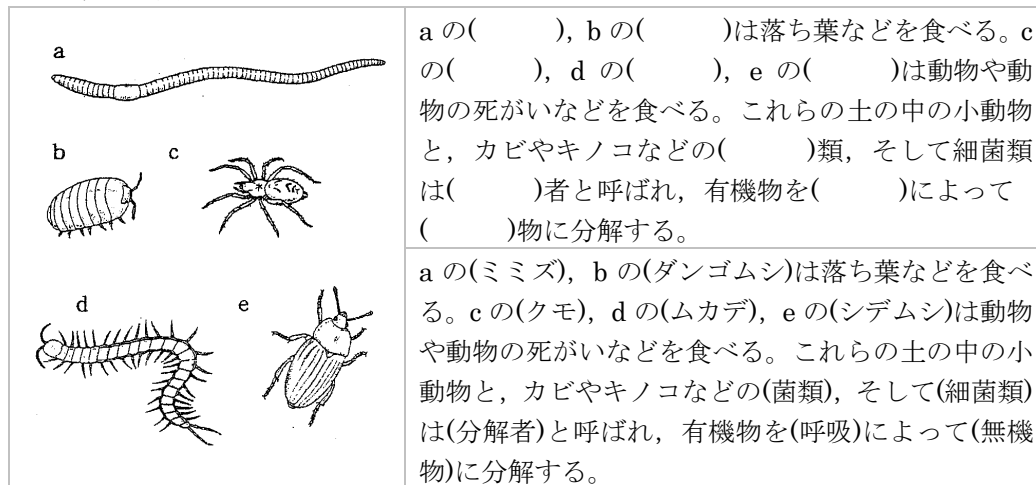 a
b
c
d
e
a の(　　　), b の(　　　)は落ち葉などを食べる。c
の(　　　), d の(　　　), e の(　　　)は動物や動
物の死がいなどを食べる。これらの土の中の小動物
と，カビやキノコなどの(　　　)類，そして細菌類
は(　　　)者と呼ばれ，有機物を(　　　)によって
(　　　)物に分解する。
a の(ミミズ)，b の(ダンゴムシ)は落ち葉などを食べ
る。c の(クモ)，d の(ムカデ)，e の(シデムシ)は動物
や動物の死がいなどを食べる。これらの土の中の小
動物と，カビやキノコなどの(菌類)，そして(細菌類)
は(分解者)と呼ばれ，有機物を(呼吸)によって(無機
物)に分解する。